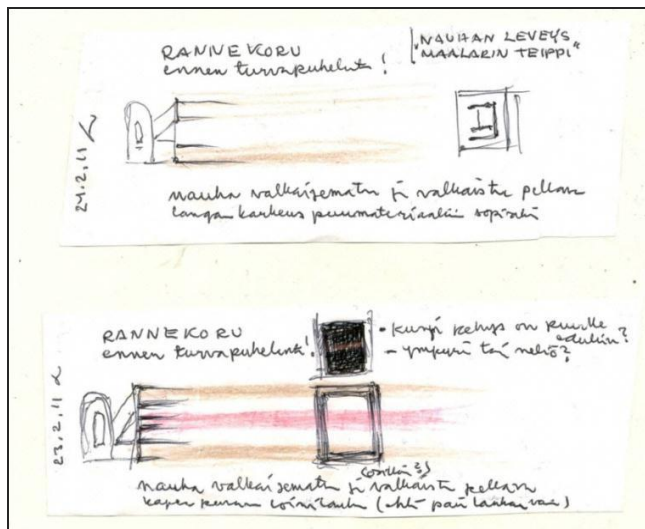 RANNEKORU
ennen turvapuhelinta!
"NAUHAN LEVEYS
MAALARIN TEIPPI"
24.2.11
nauha valkaisematu ja valkaistu pellava
langan karkeus puumateriaaliin sopiva
RANNEKORU
ennen turvapuhelinta!
- kumpi kehys on puulle
edullisin?
- ympyrä tai neliö?
23.2.11
nauha valkaisematu ja valkaistu pellava
kapea punan